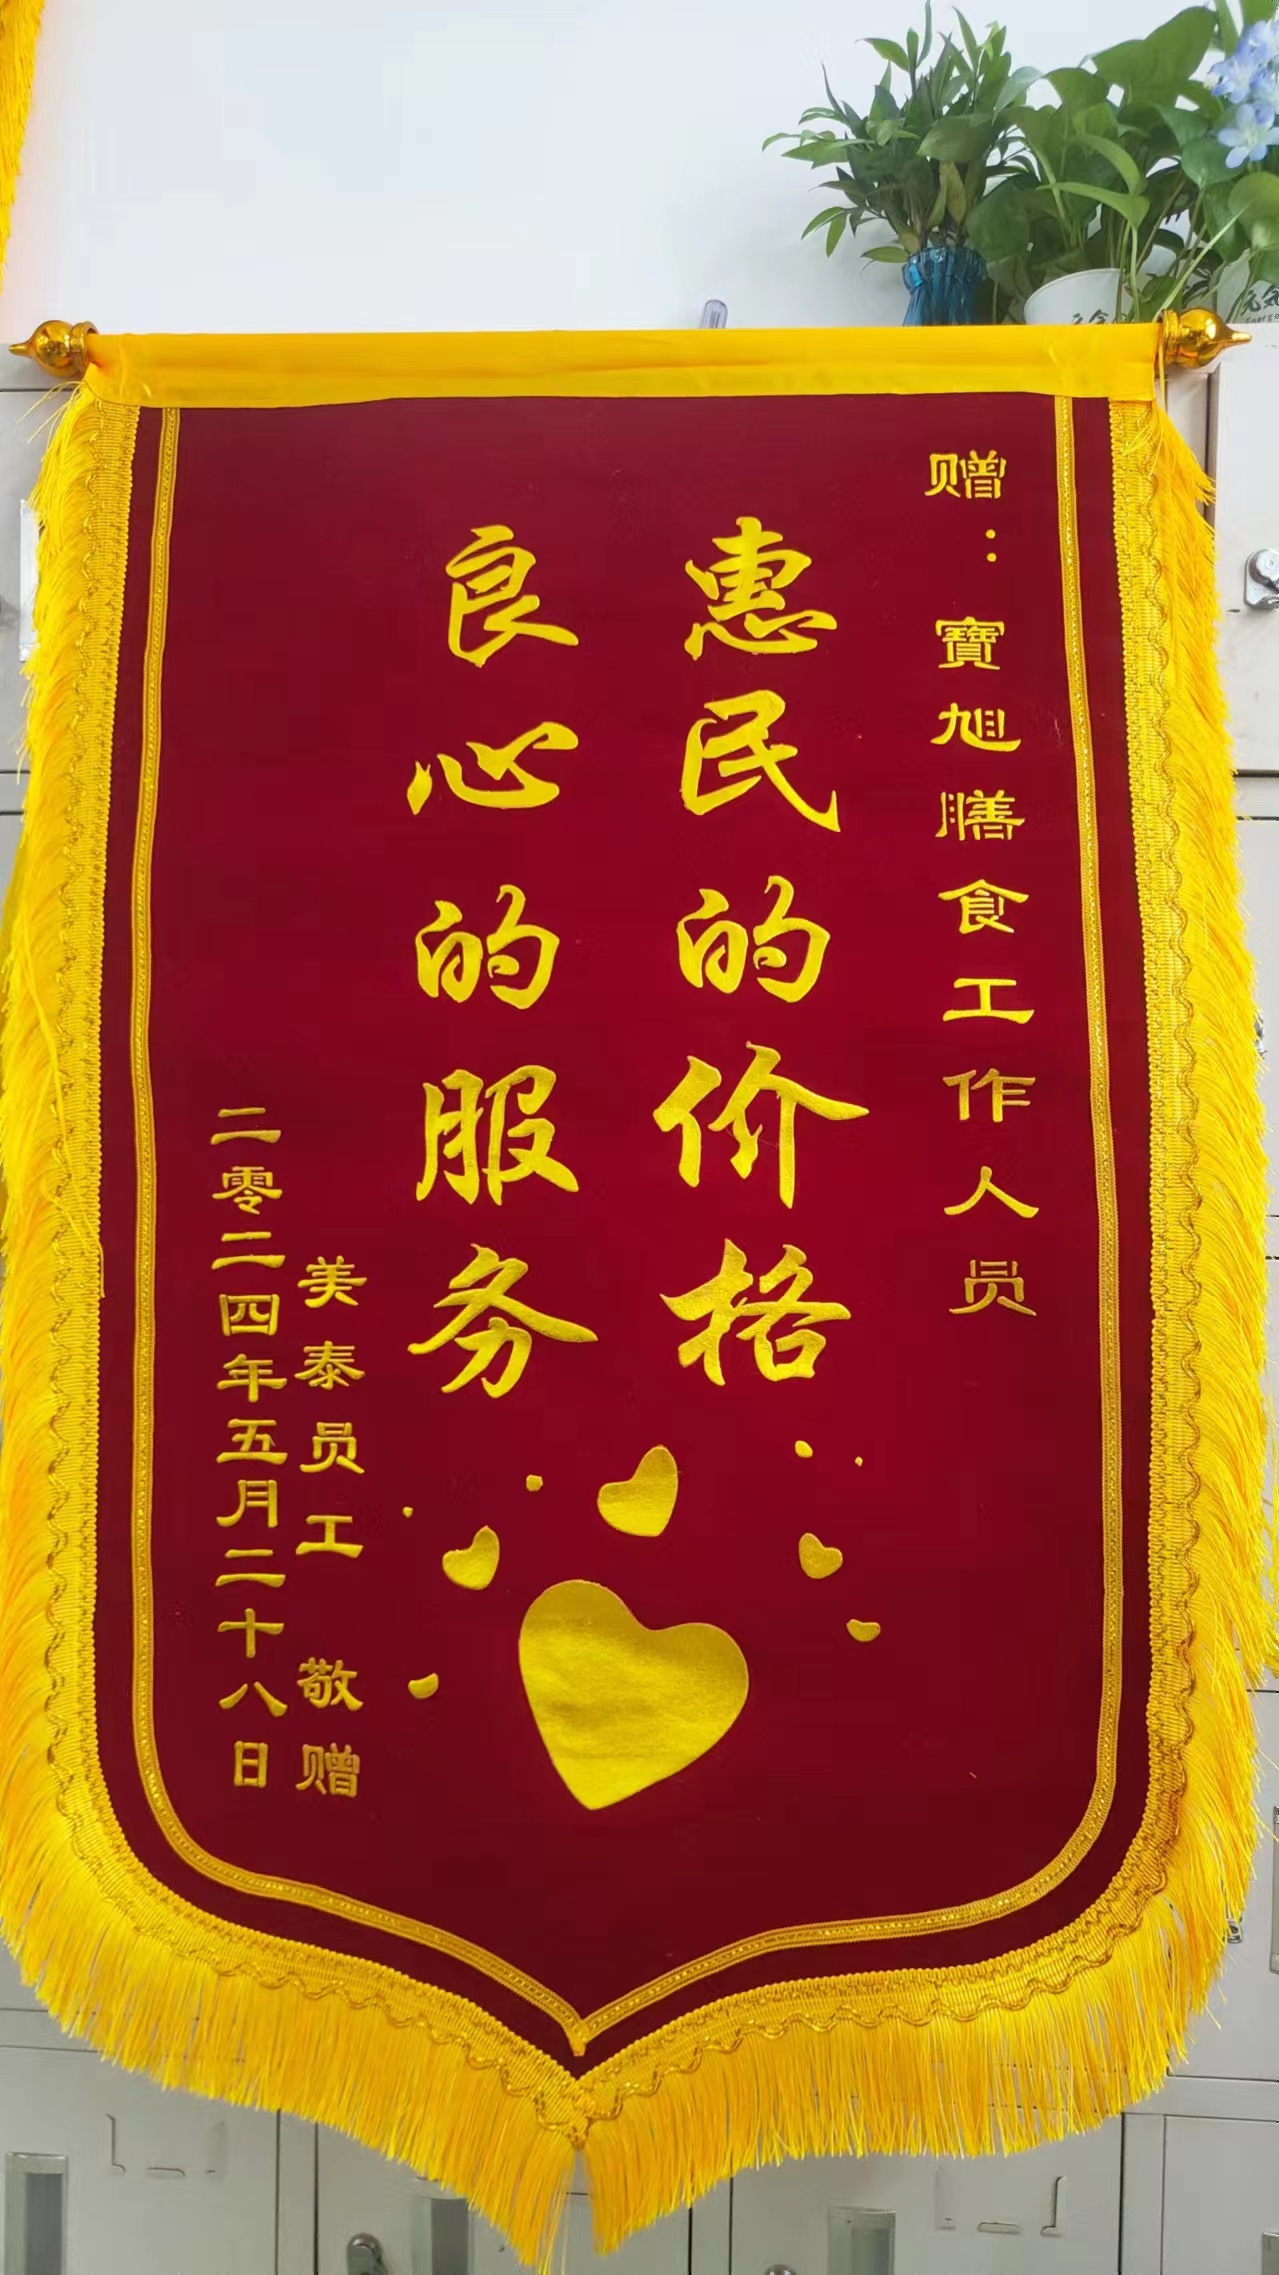 赠：寶旭膳食工作人员
惠民的价格
良心的服务
美泰员工 敬赠
二零二四年五月二十八日
元気
元気